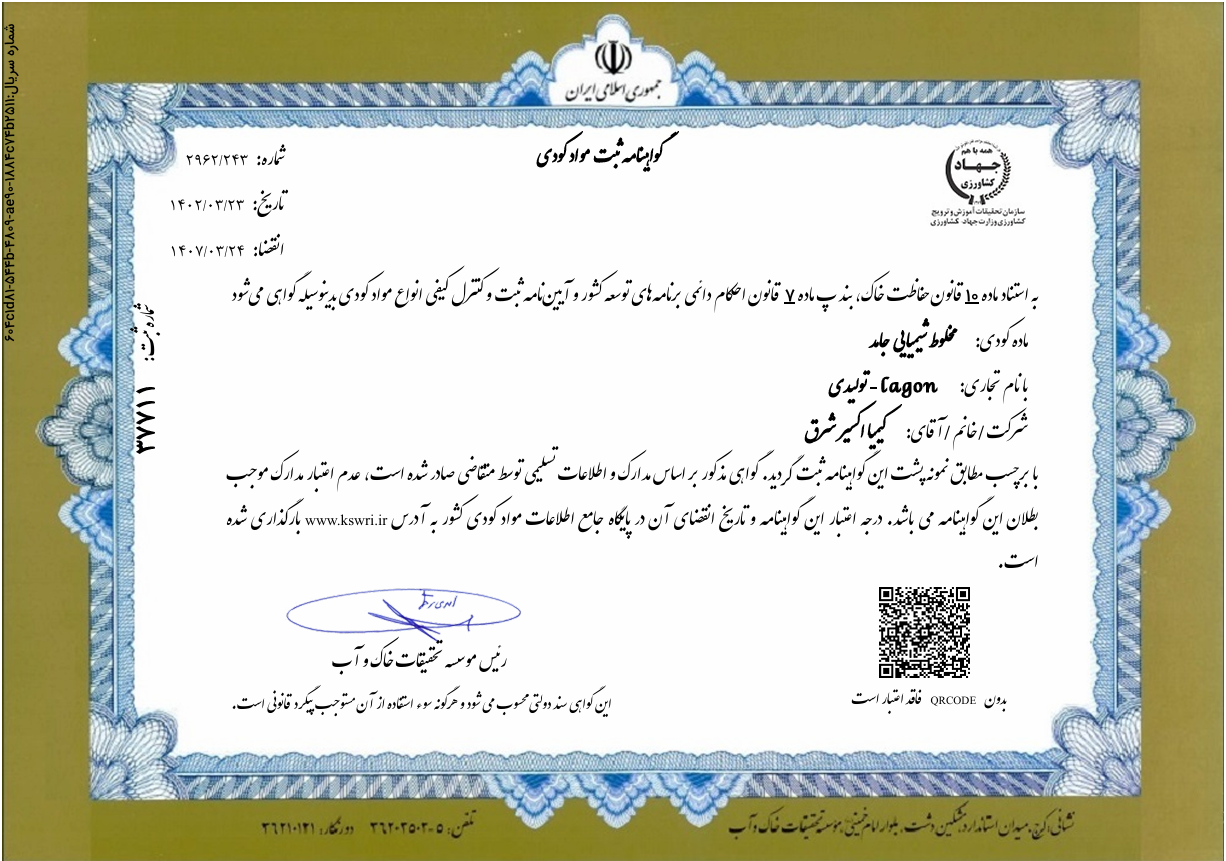 جمهوری اسلامی ایران
گواهینامه ثبت مواد کودی
شماره: ۲۹۶۲/۲۴۳
تاریخ: ۱۴۰۲/۰۳/۲۳
انقضا: ۱۴۰۷/۰۳/۲۴
همه با هم
جهاد
کشاورزی
سازمان تحقیقات آموزش و ترویج
کشاورزی وزارت جهاد کشاورزی
به استناد ماده ۱۰ قانون حفاظت خاک، بند پ ماده ۷ قانون احکام دائمی برنامه های توسعه کشور و آیین‌نامه ثبت و کنترل کیفی انواع مواد کودی بدینوسیله گواهی می‌شود
ماده کودی: مخلوط شیمیایی جامد
با نام تجاری: Cagon - تولیدی
شرکت / خانم / آقای: کیمیا اکسیر شرق
با برچسب مطابق نمونه پشت این گواهینامه ثبت گردید. گواهی مذکور بر اساس مدارک و اطلاعات تسلیمی توسط متقاضی صادر شده است، عدم اعتبار مدارک موجب
بطلان این گواهینامه می باشد. درجه اعتبار این گواهینامه و تاریخ انقضای آن در پایگاه جامع اطلاعات مواد کودی کشور به آدرس www.kswri.ir بارگذاری شده
است.
شماره ثبت: ۳۷۷۱۱
رئیس موسسه تحقیقات خاک و آب
بدون QRCODE فاقد اعتبار است
این گواهی سند دولتی محسوب می شود و هرگونه سوء استفاده از آن مستوجب پیگرد قانونی است.
نشانی: کرج، میدان استاندارد، مشکین دشت، بلوار امام خمینی، مؤسسه تحقیقات خاک و آب
تلفن: ۵-۳۶۲۰۳۵۰۲ دورنگار: ۳۶۲۱۰۱۲۱
شماره سریال: ۶۰۴c۱d۸۱-۵۴۴b-۴۸۰۹-ae۹۰-۱۸۸۴c۷۴b۲۵۱۱